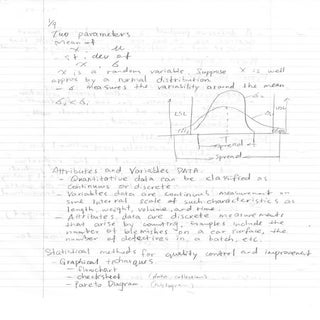 1/9
Two parameters
mean of
x μ
- st. dev of
x σ
x is a random variable. Suppose x is well
approx by a normal distribution
- σ measures the variability around the mean
σ₂ < σ₁
LSL
USL
T
spread
spread
Attributes and Variables DATA.
- Quantitative data can be classified as
continuous or discrete
- Variables data are continuous measurement on
some interval scale of such characteristics as
length, weight, volume, and time.
- Attributes data are discrete measurements
that arise by counting. Examples include the
number of blemishes on a car surface, the
number of defectives in a batch, etc.
Statistical methods for quality control and improvement
- Graphical techniques.
- flowchart
- checksheet (data collection)
- Pareto Diagram (histogram)